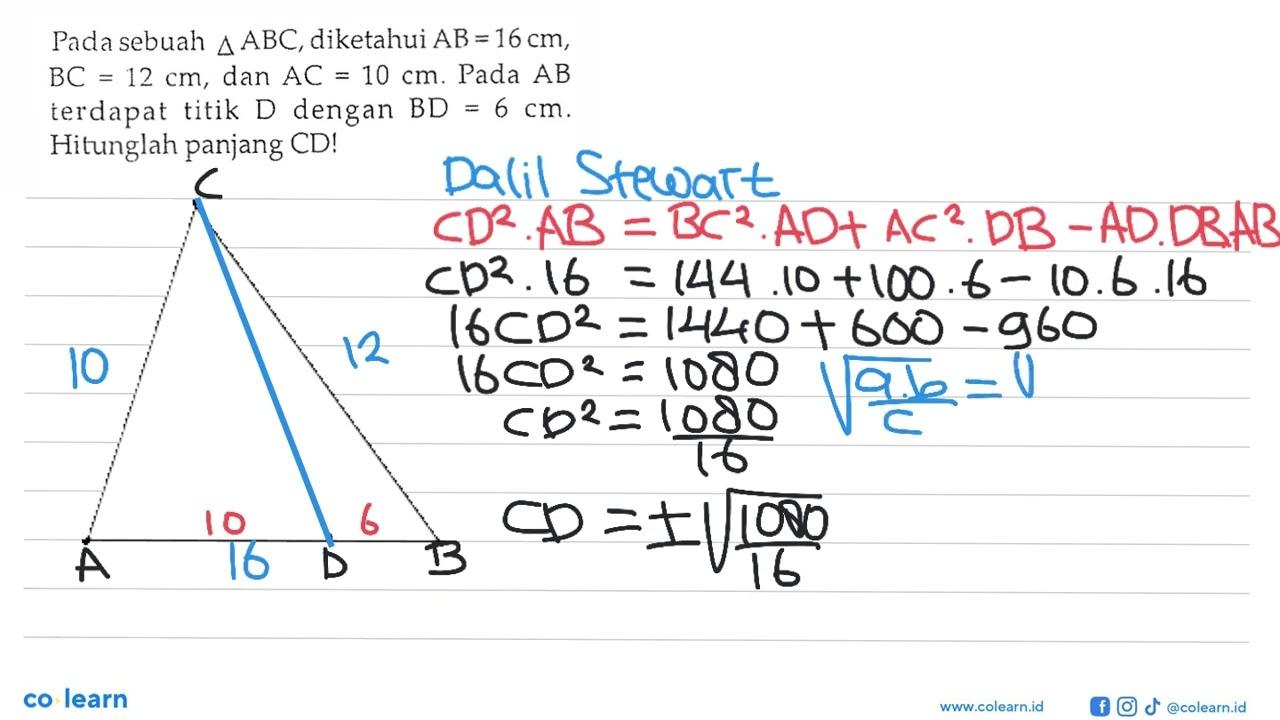 Pada sebuah △ ABC, diketahui AB = 16 cm,
BC = 12 cm, dan AC = 10 cm. Pada AB
terdapat titik D dengan BD = 6 cm.
Hitunglah panjang CD!
C
10
12
10
6
A
16
D
B
Dalil Stewart
CD². AB = BC². AD + AC². DB - AD. DB. AB
CD². 16 = 144 . 10 + 100 . 6 - 10 . 6 . 16
16CD² = 1440 + 600 - 960
16CD² = 1080
√(a.b/c) = √
CD² = 1080/16
CD = ±√(1080/16)
co learn
www.colearn.id
@colearn.id